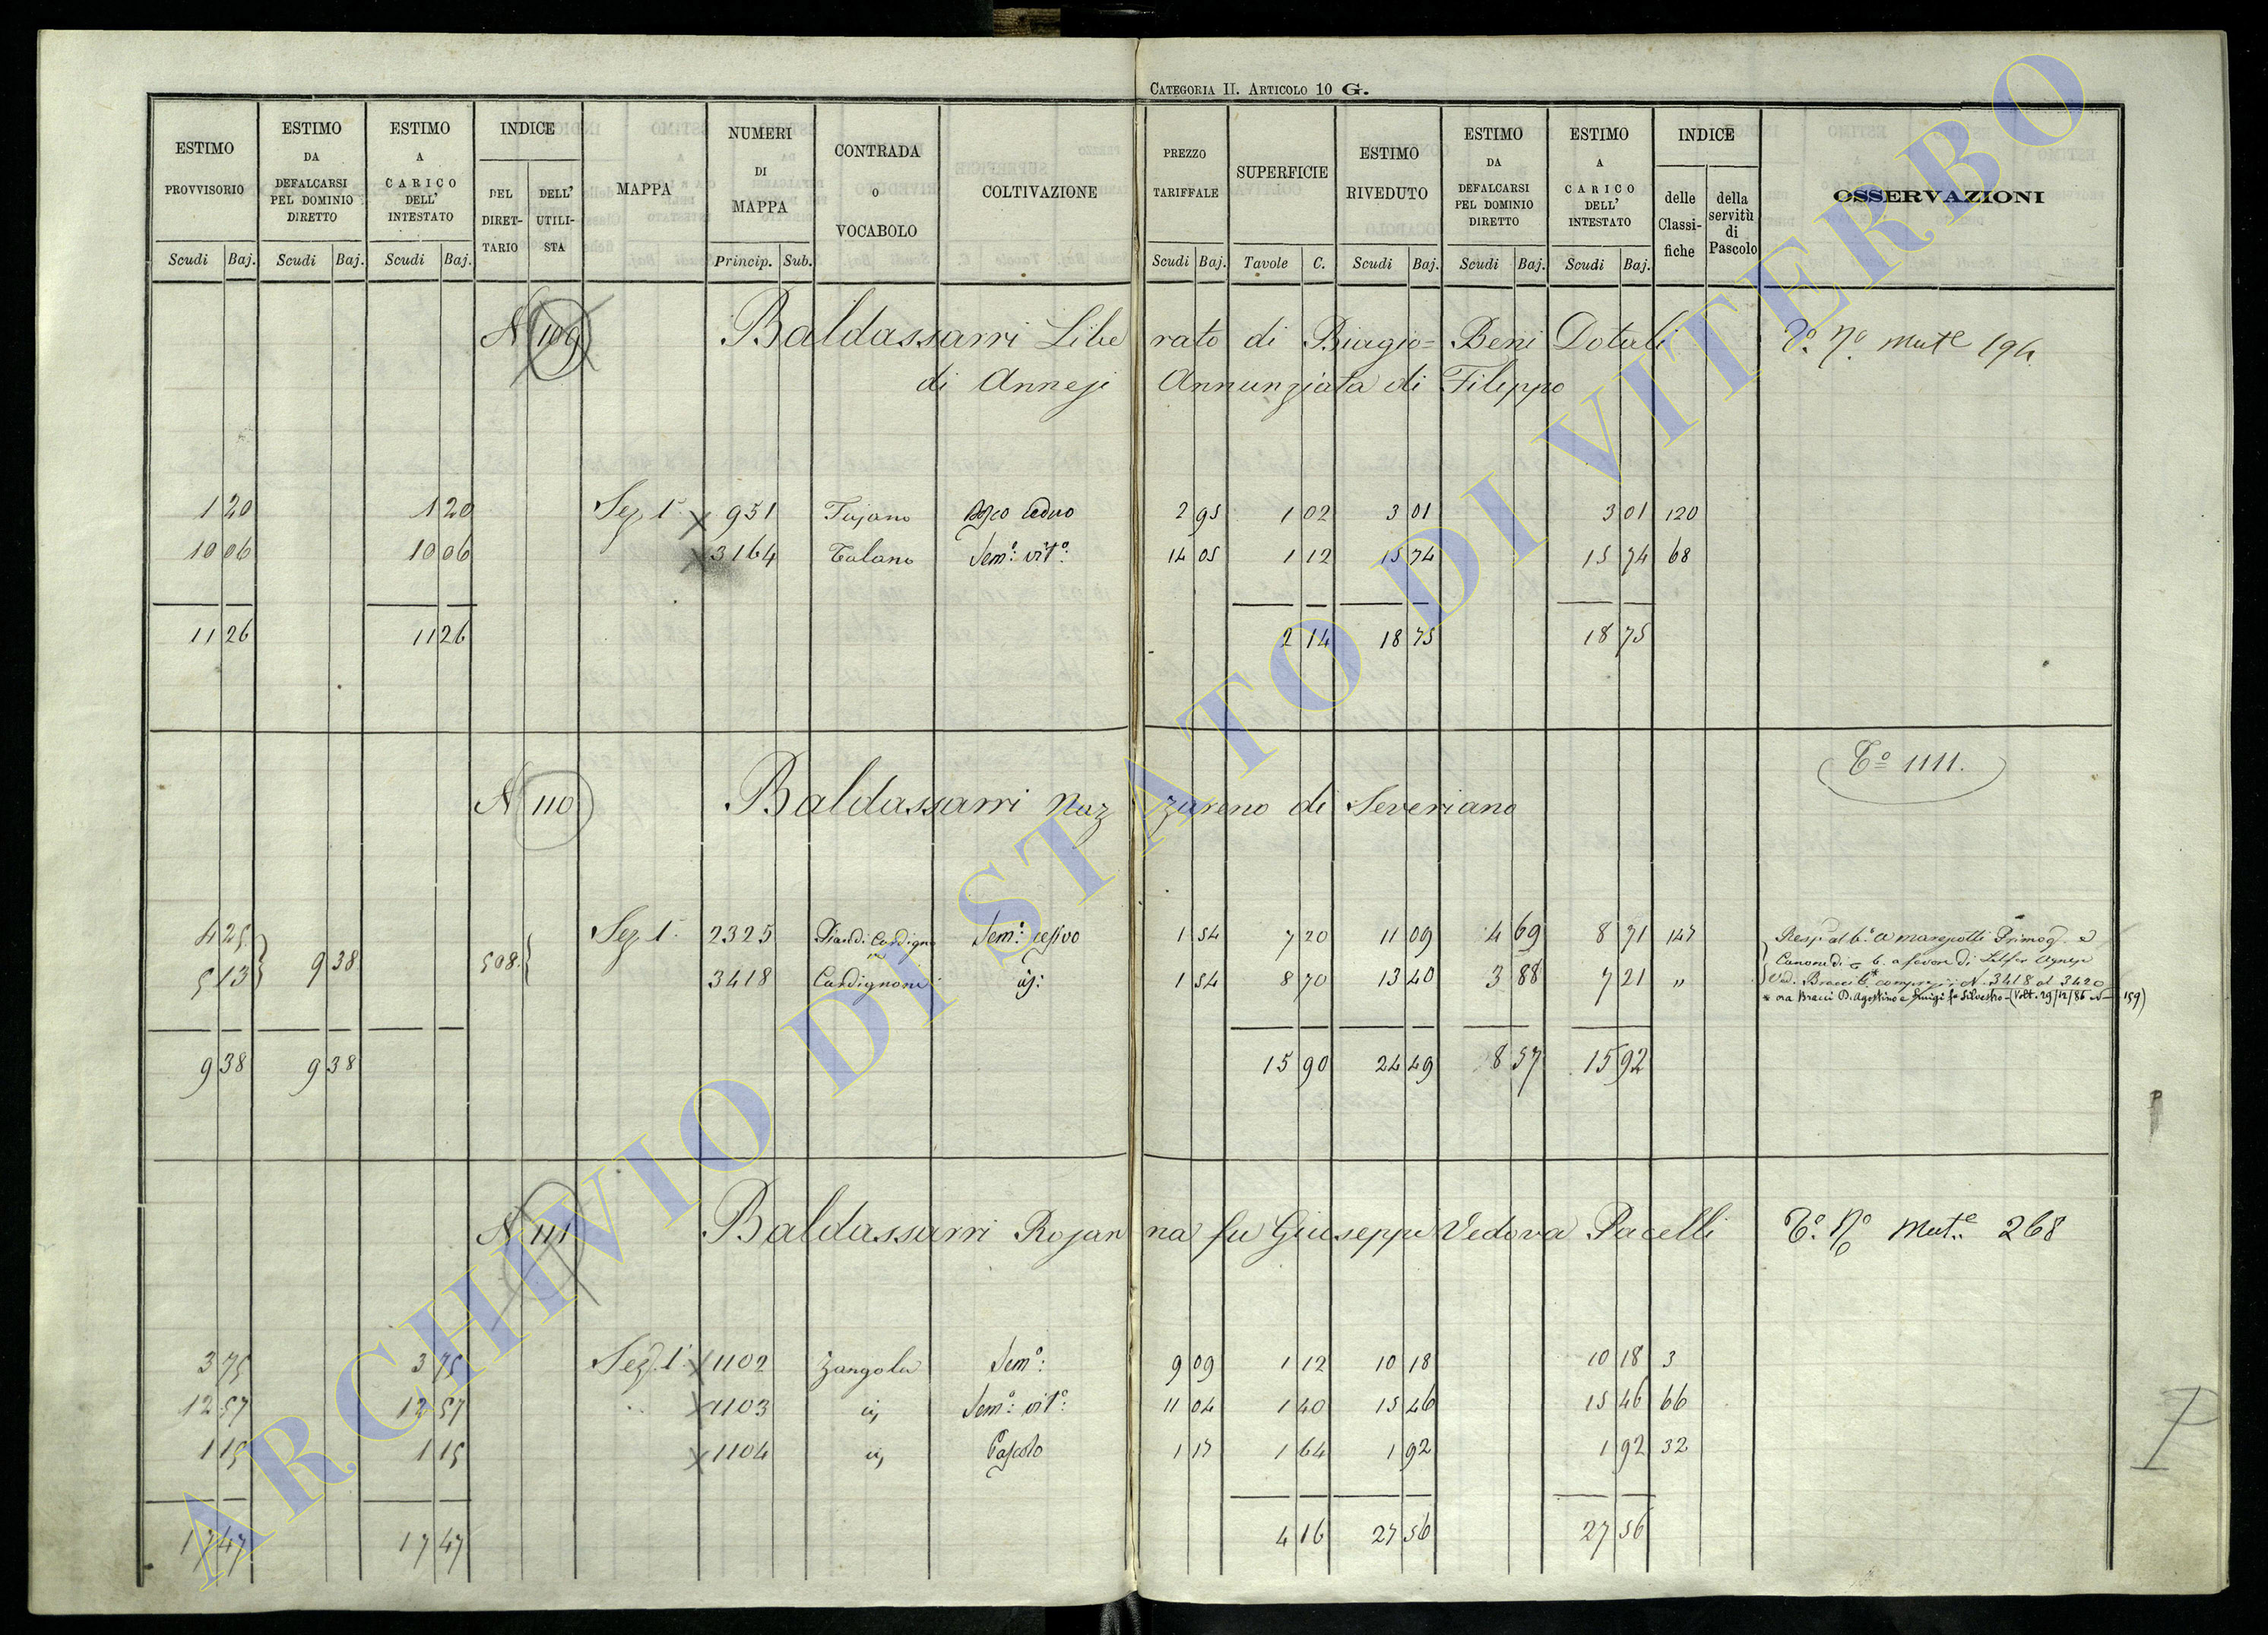 CATEGORIA II. ARTICOLO 10 G.
ESTIMO PROVVISORIO Scudi Baj. ESTIMO DA DEFALCARSI PEL DOMINIO DIRETTO Scudi Baj. ESTIMO A CARICO DELL' INTESTATO Scudi Baj. INDICE DEL DIRET-TARIO DELL' UTILI-STA MAPPA NUMERI DI MAPPA Princip. Sub. CONTRADA O VOCABOLO COLTIVAZIONE PREZZO TARIFFALE Scudi Baj. SUPERFICIE Tavole C. ESTIMO RIVEDUTO Scudi Baj. ESTIMO DA DEFALCARSI PEL DOMINIO DIRETTO Scudi Baj. ESTIMO A CARICO DELL' INTESTATO Scudi Baj. INDICE delle Classi-fiche della servitù di Pascolo OSSERVAZIONI
N 109 Baldassarri Liberato di Biagio = Beni Dotali Vo. No. Mut.e 194
di Anneji Annunziata di Filippo
1 20 1 20 Sez. 1ª 951 Fujano Bosco Ceduo 2 95 1 02 3 01 3 01 120
10 06 10 06 3164 Talano Sem.o vit.o 14 05 1 12 15 74 15 74 68
11 26 11 26 2 14 18 75 18 75
To 1111.
N 110 Baldassarri Nazzareno di Severiano
4 25 9 38 508 Sez. 1ª 2325 Sem.o 1 54 7 20 11 09 4 69 8 71 147
5 13 3418 Cardignone 1 54 8 70 13 40 3 88 7 21 "
Canone di a favore di Agnese
N. 3418 al 3420
* ora Bracci D. Agostino e Luigi fu Silvestro - (Volt. 29/12/86 N 159)
9 38 9 38 15 90 24 49 8 57 15 92
N 111 Baldassarri Rosanna fu Giuseppe Vedova Pacelli To. No Mut.e 268
3 75 3 75 Sez. 1ª 1102 Zangola Sem.o 9 09 1 12 10 18 10 18 3
12 57 12 57 1103 Sem.o vit.o 11 04 1 40 15 46 15 46 66
1 15 1 15 1104 Pascolo 1 17 1 64 1 92 1 92 32
17 47 17 47 4 16 27 56 27 56
P
P
ARCHIVIO DI STATO DI VITERBO